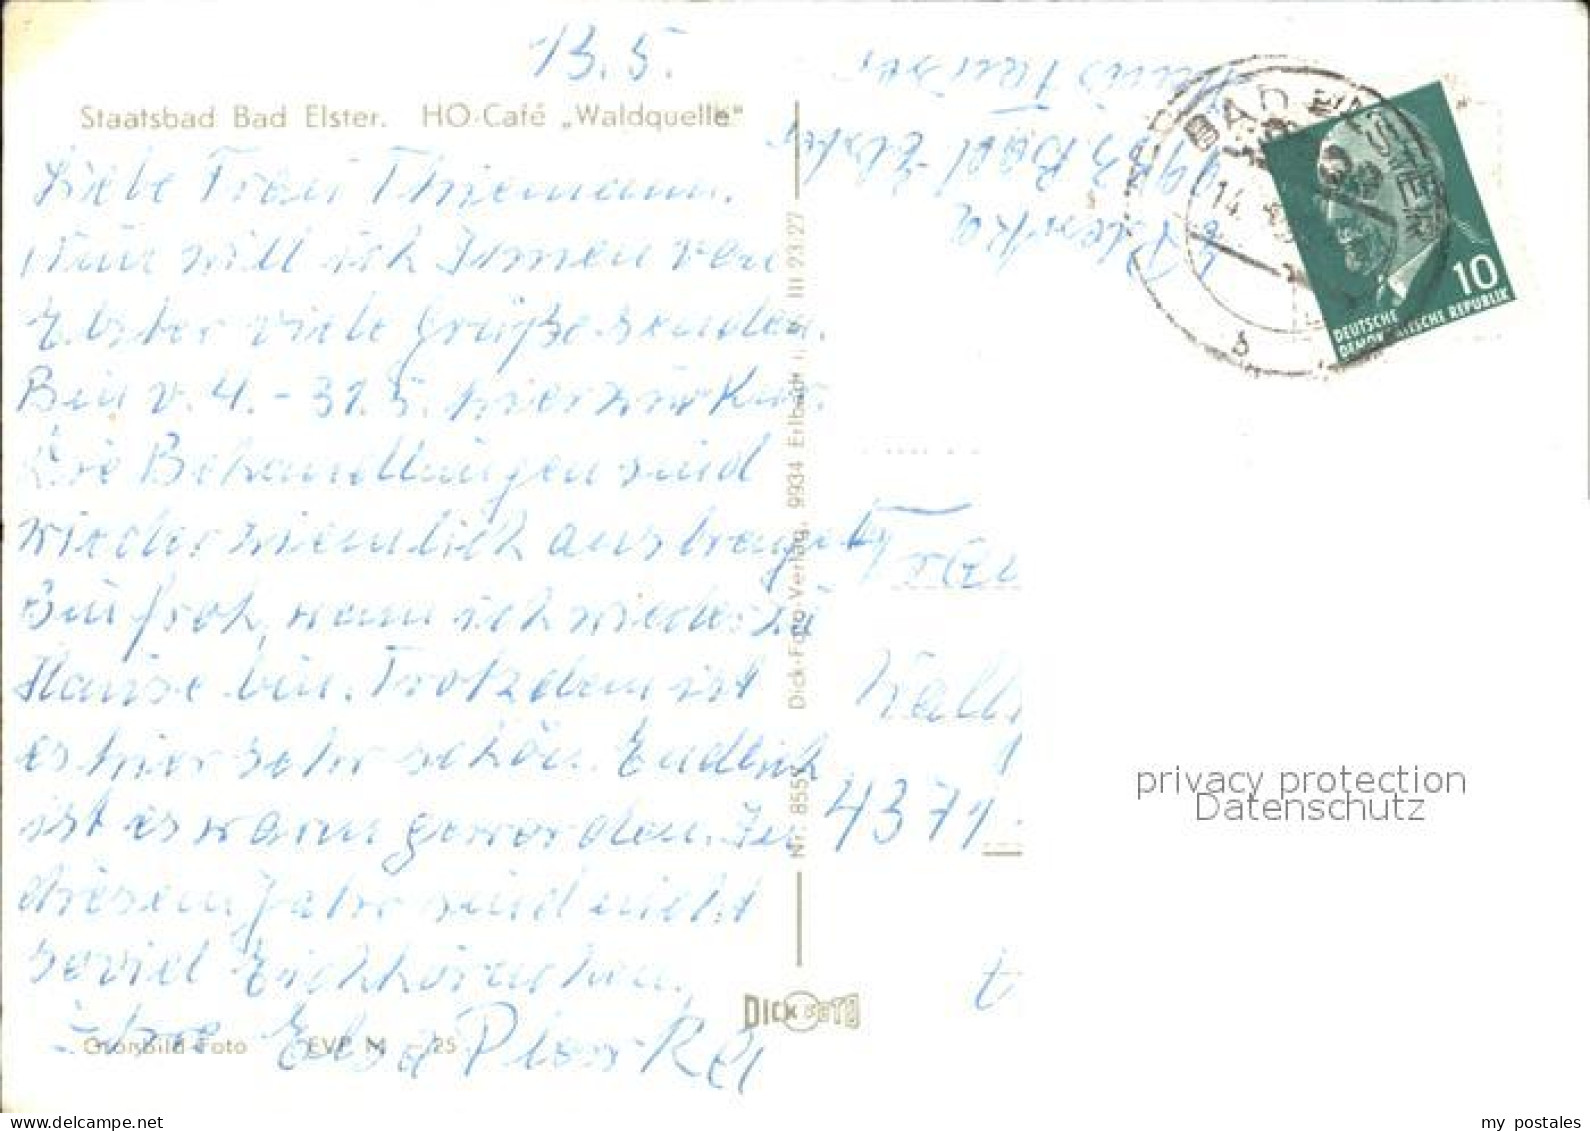 13.5.
Staatsbad Bad Elster. HO-Café „Waldquelle"
Liebe Frau Thiemann.
Nun will ich Ihnen von
Elster viele Grüße senden.
Bin v. 4. - 31.5. hier zur Kur.
Die Behandlungen sind
wieder ziemlich anstrengend
Bin froh, wann ich wieder zu
Hause bin. Trotzdem ist
es hier sehr schön. Endlich
ist es warm geworden. In
diesem Jahr sind nicht
soviel Eichhörnchen.
Ihre Elsa Plonka
Großbild-Foto EVP M -,25
Nr. 855 Dick-Foto-Verlag, 9934 Erlbach i. III 23 27
DICK FOTO
Plonka
9933 Bad-Elster
Haus
BAD ELSTER
14.
10
DEUTSCHE
DEMOKRATISCHE REPUBLIK
Frau
4371
privacy protection
Datenschutz
my postales